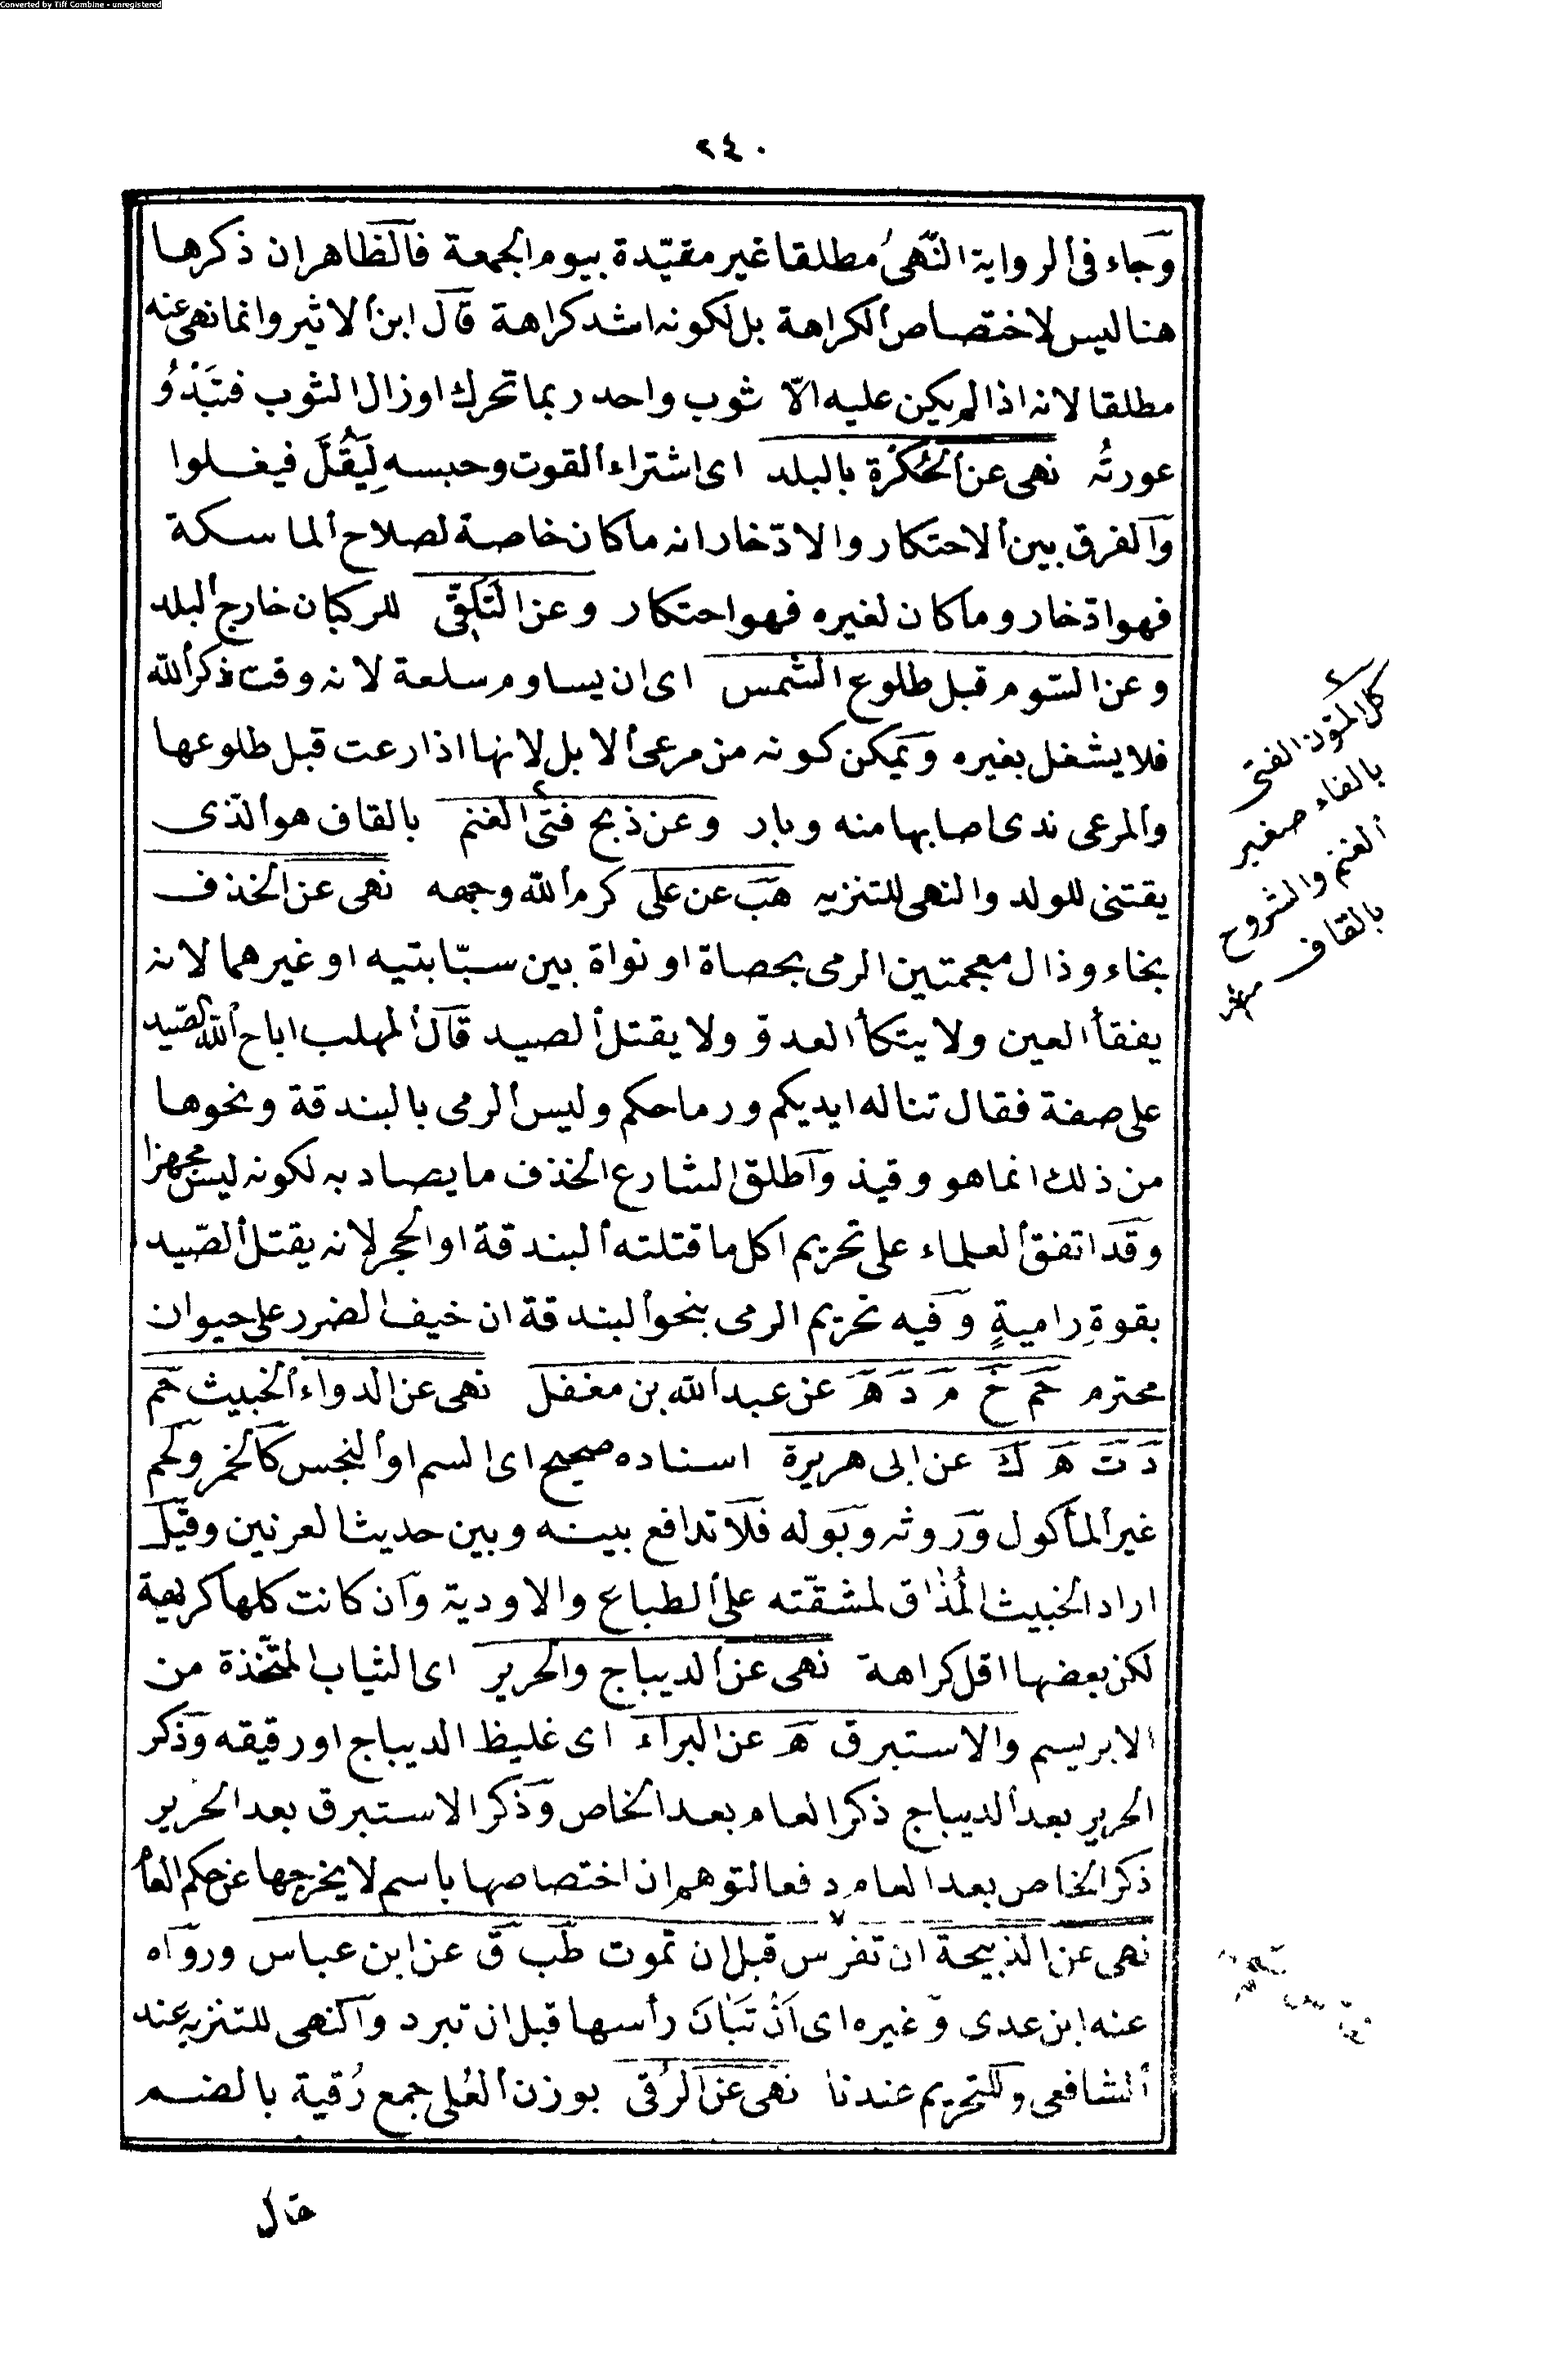 Converted by Tiff Combine - unregistered
٢٤٠
وجاء فى الرواية النهى مطلقا غير مقيّدة بيوم الجمعة فالظاهر ان ذكرها
هنا ليس لاختصاص الكراهة بل لكونه اشد كراهة قال ابن الاثير وانما نهى عنه
مطلقا لانه اذا لم يكن عليه الّا ثوب واحد ربما تحرك او زال الثوب فتَبْدُوُ
عورتُه نهى عن الحُكْرَة بالبلد اى اشتراء القوت وحبسه لِيَقُلَّ فيغلوا
والفرق بين الاحتكار والادّخار انه ما كان خاصة لصلاح الماسكة
فهو ادّخار وما كان لغيره فهو احتكار وعن التَلَقّى للركبان خارج البلد
وعن السّوم قبل طلوع الشمس اى ان يساوم سلعة لانه وقت ذكر الله
فلا يشغل بغيره ويمكن كونه من مرعى الابل لانها اذا رعت قبل طلوعها
والمرعى ند اصابها منه وبار وعن ذبح فتى الغنم بالقاف هو الّذى
يقتنى للولد والنهى للتنزيه هب عن على كرم الله وجهه نهى عن الخذف
بخاء وذال معجمتين الرمى بحصاة او نواة بين سبّابتيه او غيرهما لانه
يفقأ العين ولا يتكأ العدوّ ولا يقتل الصيد قال المهلب اباح الله الصّيد
على صفة فقال تناله ايديكم ورماحكم وليس الرمى بالبندقة ونحوها
من ذلك انما هو وقيذ واطلق الشارع الخذف ما يصاد به لكونه ليس مجهزا
وقد اتفق العلماء على تحريم اكل ما قتلته البندقة او الحجر لانه يقتل الصّيد
بقوةِ راميةٍ وفيه تحريم الرمى بنحو البندقة ان خيف الضرر على حيوان
محترم حم خ م د ه عن عبد الله بن مغفل نهى عن الدواء الخبيث حم
د ت ه ك عن ابى هريرة اسناده صحيح اى السم او النجس كالخمر ولحم
غير المأكول وروثه وبوله فلا تدافع بينه وبين حديث العرنين وقيل
اراد الخبيث المُذاق لمشقّته على الطباع والاودية وان كانت كلها كريهة
لكن بعضها اقل كراهة نهى عن الديباج والحرير اى الثياب المتّخذة من
الابريسم والاستبرق ه عن البراء اى غليظ الديباج او رقيقه وذكر
الحرير بعد الديباج ذكر العام بعد الخاص وذكر الاستبرق بعد الحرير
ذكر الخاص بعد العام دفعا لتوهم ان اختصاصها باسم لا يخرجها عن حكم العام
نهى عن الذبيحة ان تفرس قبل ان تموت طب ق عن ابن عباس ورواه
عنه ابن عدى وغيره اى اَنْ تَبَانَ رأسها قبل ان تبرد والنهى للتنزيه عند
الشافعى وللتحريم عندنا نهى عن الرُقى بوزن العُلى جمع رُقية بالضم
كل المتون الفتى
بالفاء صغير
الغنم والشروح
بالقاف
قال